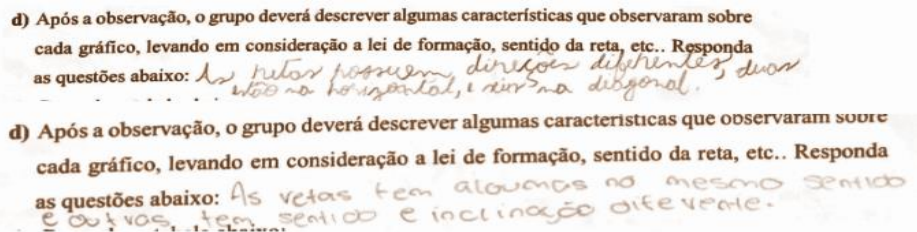 d) Após a observação, o grupo deverá descrever algumas características que observaram sobre
cada gráfico, levando em consideração a lei de formação, sentido da reta, etc.. Responda
as questões abaixo: As retas possuem direções diferentes, duas
estão na horizontal, e na diagonal.
d) Após a observação, o grupo deverá descrever algumas características que observaram sobre
cada gráfico, levando em consideração a lei de formação, sentido da reta, etc.. Responda
as questões abaixo: As retas tem algumas no mesmo sentido
e outras tem sentido e inclinação diferente.